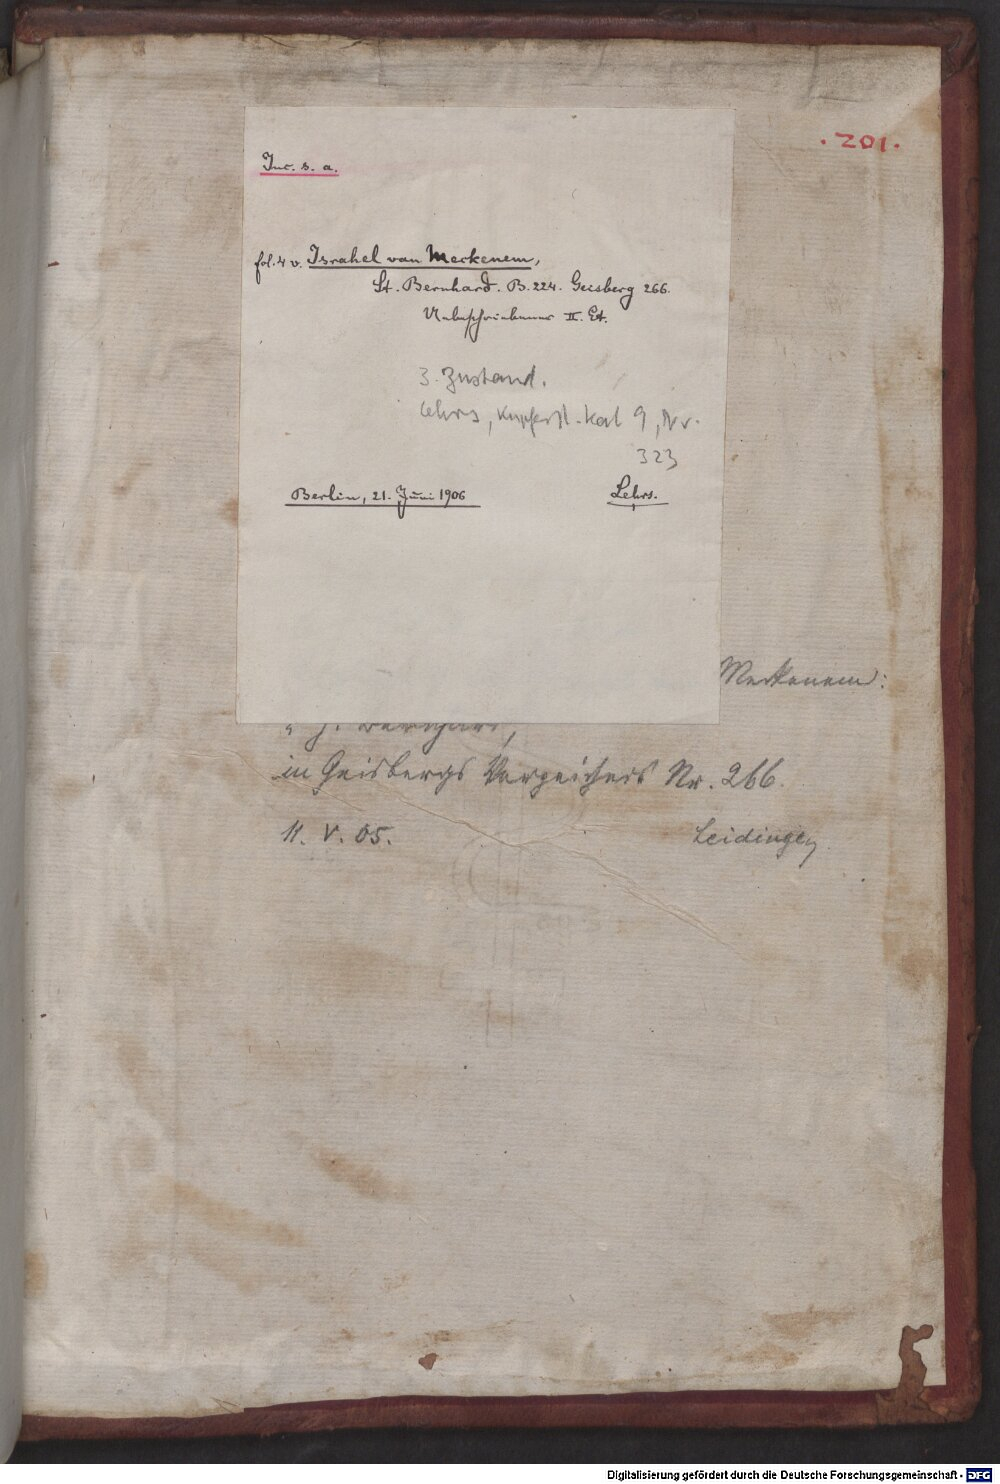 . 201 .
Inc. s. a.
fol. 4 v. Israhel van Meckenem,
St. Bernhard. B. 224. Geisberg 266.
Unbeschriebener II. Et.
3. Zustand.
Lehrs, Kupferst. Kat 9, Nr.
323
Berlin, 21. Juni 1906 Lehrs.
Meckenem:
in Geisbergs Verzeichnis Nr. 266.
11. V. 05. Leidinger
Digitalisierung gefördert durch die Deutsche Forschungsgemeinschaft - DFG